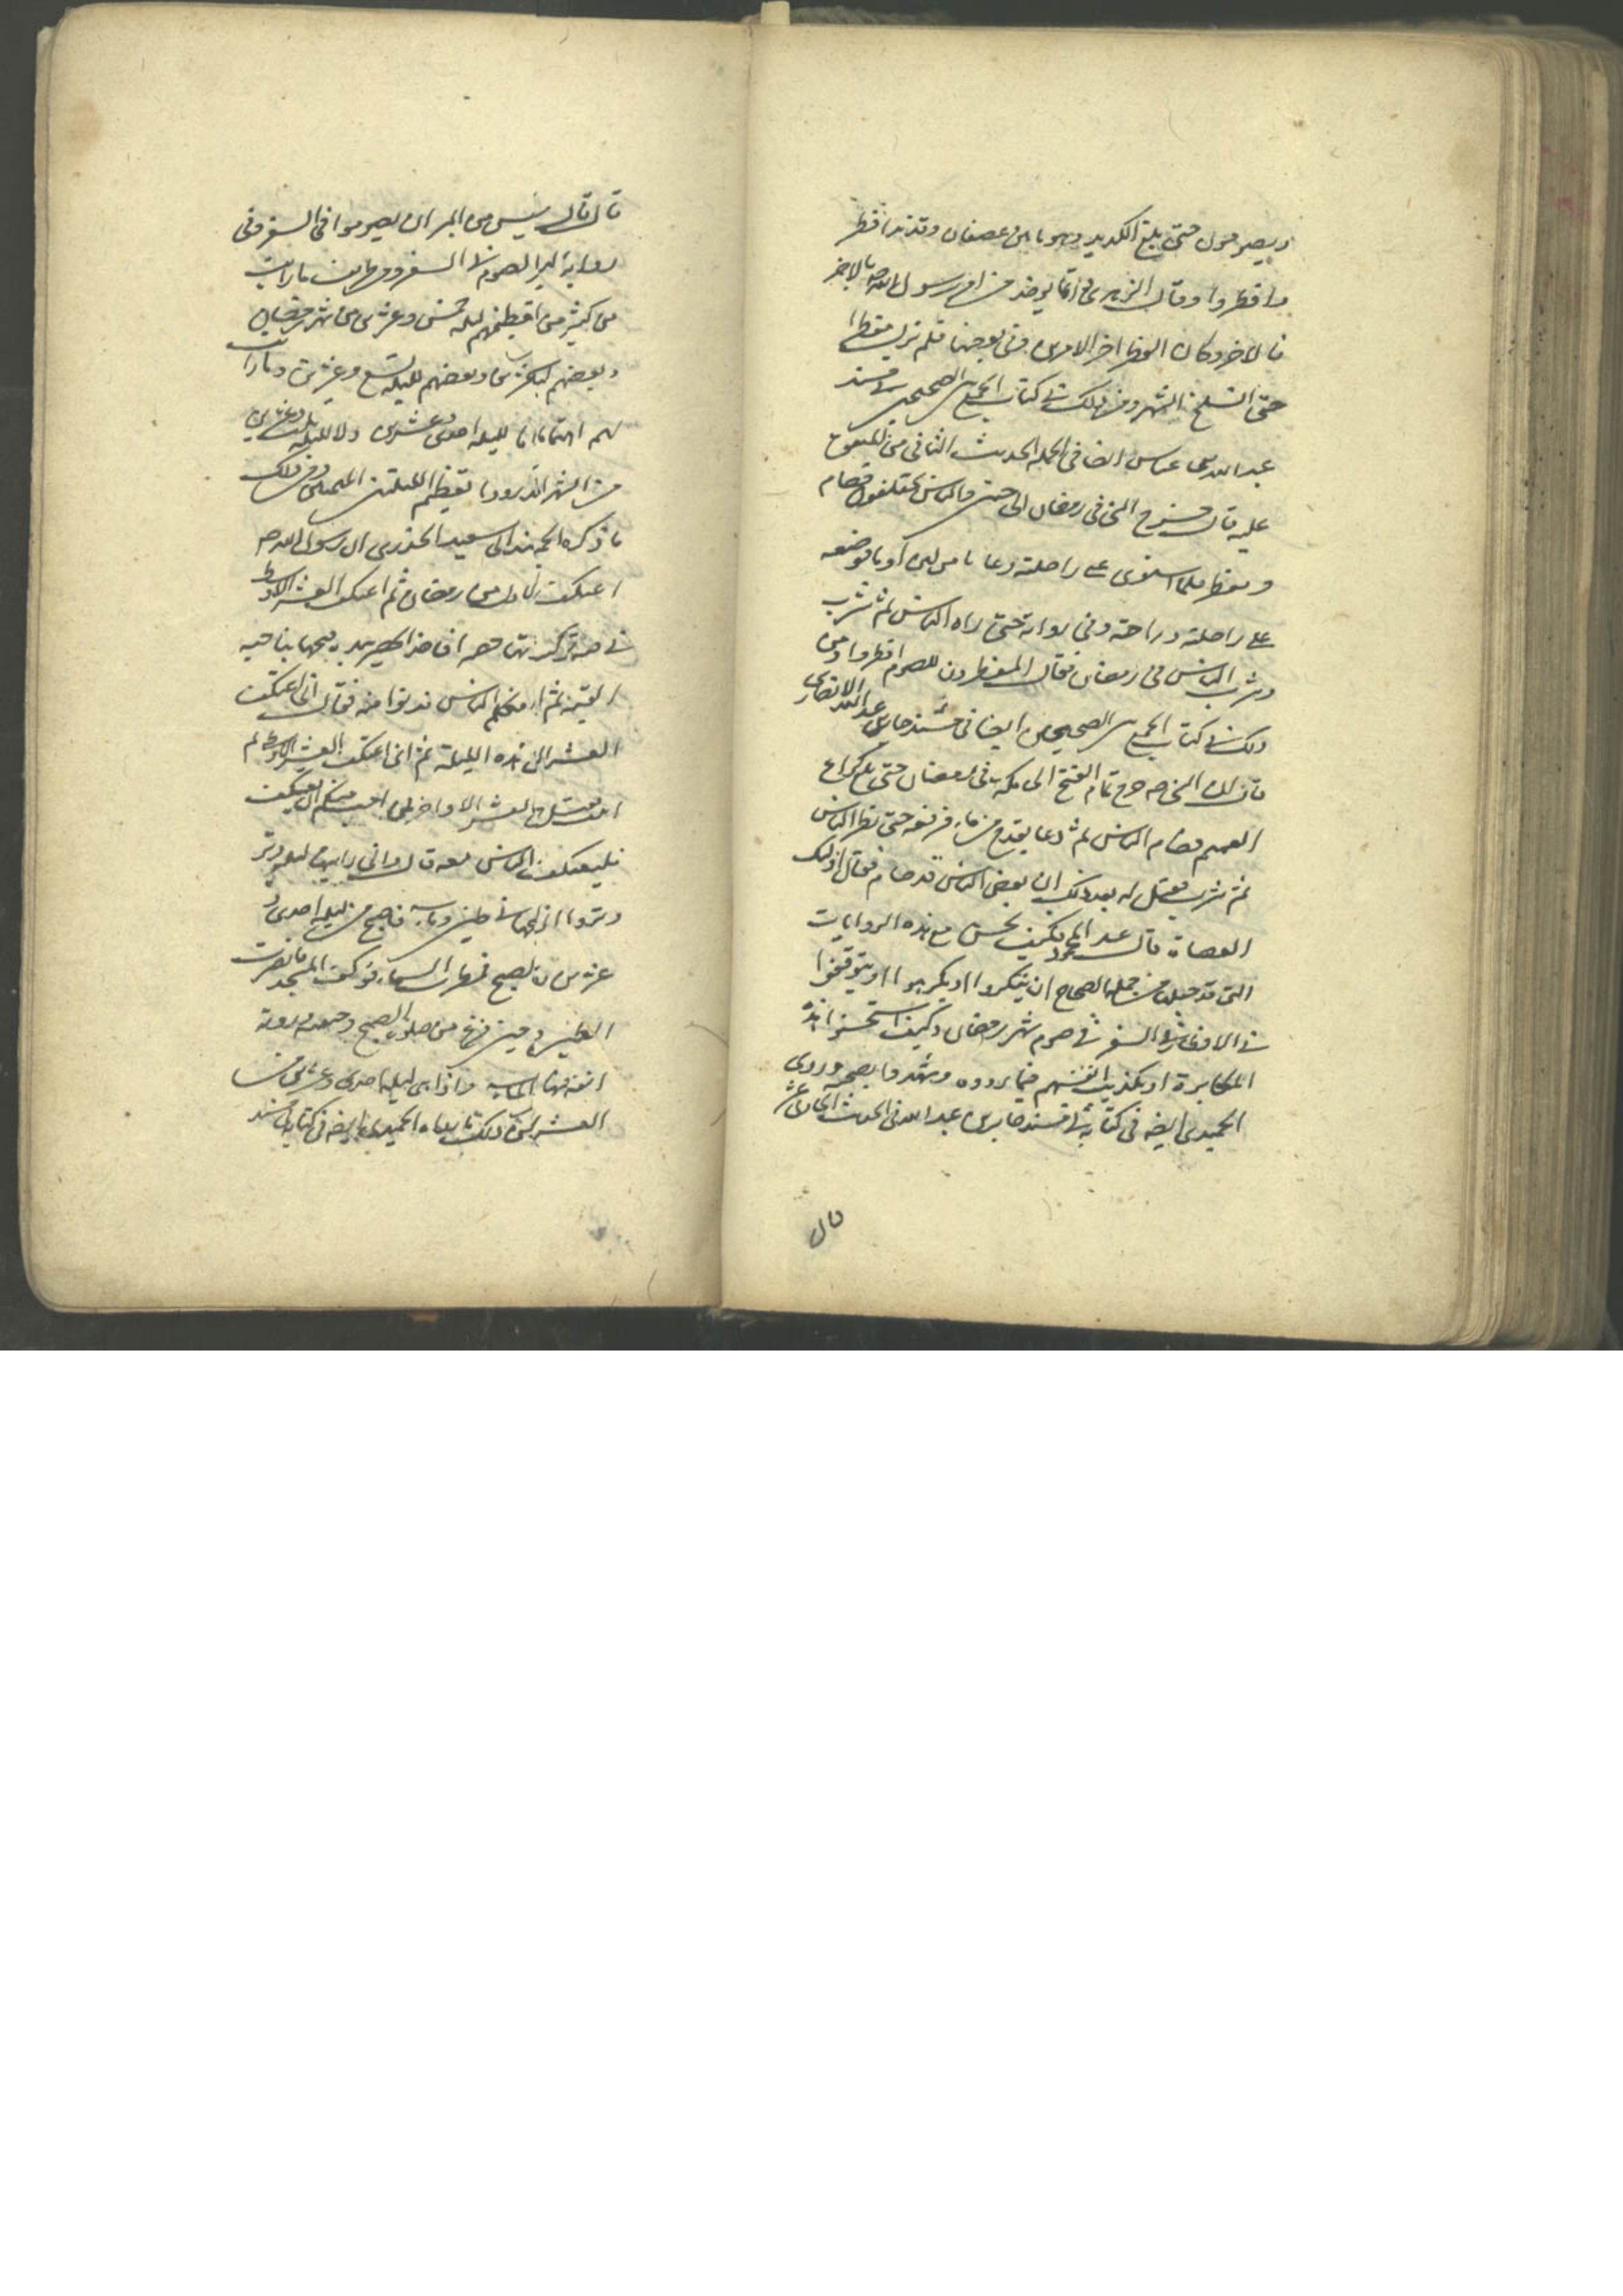 ويصومون حتى بلغ الكديد وهو ما بين عصفان وقديد افطر
وافطروا وقال الزهري وانما يوخذ من امر رسول الله ص بالاخر
فالاخر وكان الفطر اخر الامرين وفي بعضها فلم يزل مفطرا
حتى انسلخ الشهر ومن ذلك في كتاب الجمع بين الصحيحين في مسند
عبد الله بن عباس ايضا في الحديث الثاني من المتفق
عليه قال خرج النبي في رمضان الى حنين والناس مختلفون فصام
ومفطر فلما استوى على راحلته دعا بانا من لبن او ماء فوضعه
على راحلته وراحته وفي رواية حتى راه الناس ثم شرب
وشرب الناس في رمضان فقال المفطرون للصوم افطروا ومن
ذلك في كتاب الجمع بين الصحيحين ايضا في مسند جابر بن عبد الله الانصاري
قال ان النبي ص خرج عام الفتح الى مكة في رمضان حتى بلغ كراع
الغميم فصام الناس ثم دعا بقدح من ماء فرفعه حتى نظر الناس
ثم شرب فقيل له بعد ذلك ان بعض الناس قد صام فقال اولئك
العصاة قال عبد المحمود فكيف يحسن مع هذه الروايات
التي قد جعلوها من جملة الصحاح ان ينكروا او يكرهوا او يتوقفوا
في الافطار في السفر في صوم شهر رمضان وكيف استحسنوا هذه
المكابرة او تكذيب انفسهم فيما يرووه وشهدوا بصحته وروى
الحميدي ايضا في كتابه في مسند جابر بن عبد الله في الحديث الحادي عشر
قال
قال قال ليس من البر ان يصوموا في السفر وفي
رواية البر الصوم في السفر ومن طرايف ما رايت
من كثير منهم ليلة خمس وعشرين من شهر رمضان
وبعضهم وبعضهم لليلة تسع وعشرين وما رايت
لهم اهتماما لليلة احدى وعشرين ولا لليلة ثلث وعشرين
من الشهر وقد رووا تعظيم الليلتين فمن ذلك
ما ذكره الحميدي ابي سعيد الخدري ان رسول الله ص
اعتكف الاول من رمضان ثم اعتكف العشر الاوسط
في قبة تركية فاخذ الحصير بيده فنحاها بناحية
القبة ثم فكلم الناس فدنوا منه فقال اني اعتكفت
العشر هذه الليلة ثم اني اعتكفت العشر الاوسط ثم
فقيل العشر الاواخر فمن احب منكم ان يعتكف
فليعتكف الناس معه قال واني رايتها ليلة وتر
في طين وماء فاصبح من ليلة احدى و
عشرين الصبح فمطرت السماء فوكف المسجد فابصرت
الطين حين فرغ من صلوة الصبح وجبينه وروثة
انفه فيها الماء واذا هي ليلة احدى وعشرين من
العشر ومن ذلك ما رواه الحميدي ايضا في كتابه في مسند